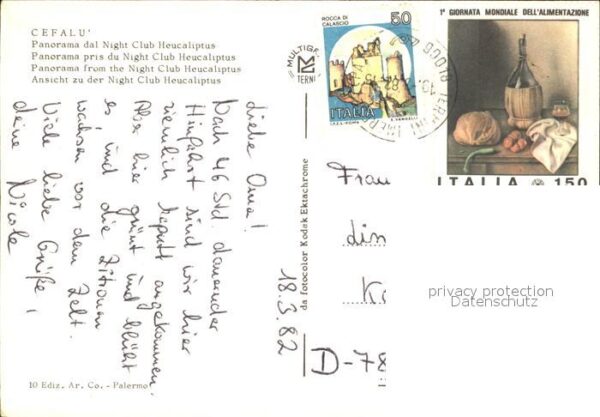 CEFALU'
Panorama dal Night Club Heucaliptus
Panorama pris du Night Club Heucaliptus
Panorama from the Night Club Heucaliptus
Ansicht zu der Night Club Heucaliptus
Liebe Oma!
Nach 46 Std. dauernder
Hinfahrt sind wir hier
ziemlich kaputt angekommen.
Aber hier grünt und blüht
es, und die Zitronen
wachsen vor dem Zelt.
Viele liebe Grüße,
deine Nicole
18.3.82
10 Ediz. Ar. Co. - Palermo
da fotocolor Kodak Ektachrome
MULTIGR.
TERNI
ROCCA DI
CALASCIO
50
ITALIA
I.P.Z.S. - ROMA
E. VANGELLI
90010
1ª GIORNATA MONDIALE DELL'ALIMENTAZIONE
ITALIA 150
Frau
D-78
privacy protection
Datenschutz